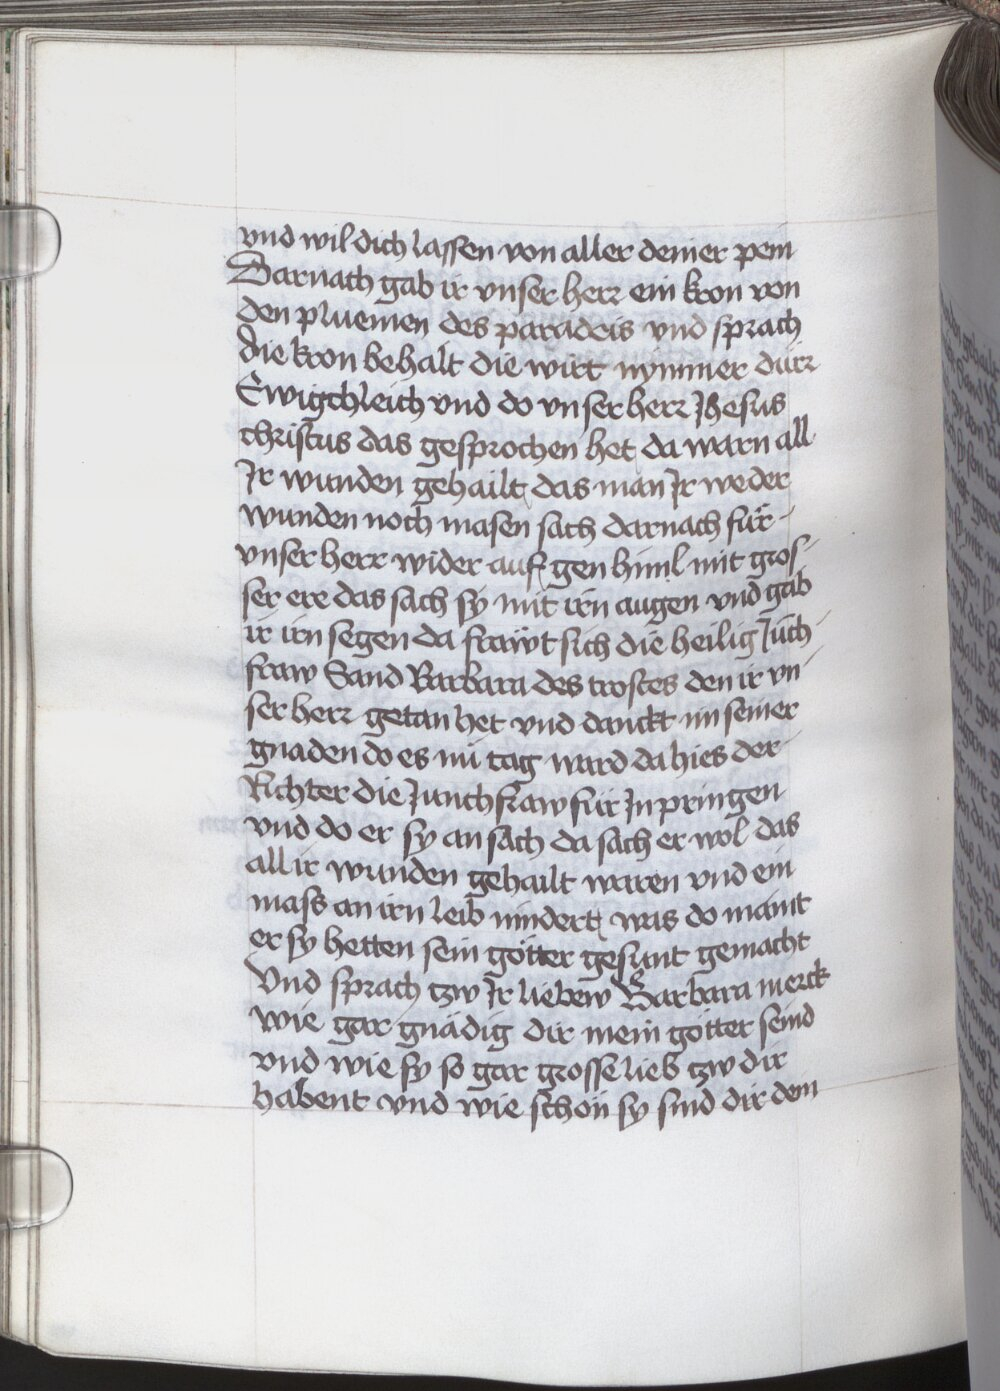 vnd wil dich lassen von aller deiner pein
Darnach gab ir vnser herr ein kron von
den pluemen des paradeis vnd sprach
die kron behalt die wirt nymmer dürr
Ewigchleich vnd do vnser herr Jhesus
christus das gesprochen het da warn all
Jr wunden gehailt das man Jr weder
wunden noch masen sach darnach für
vnser herr wider auf gen himl mit gros-
ser ere das sach sy mit irn augen vnd gab
ir irn segen da fräwt sich die heilig Jūch-
fraw Sand Barbara des trostes den ir vn
ser herr getan het vnd danckt im seiner
gnaden do es nū tag ward da hies der
Richter die Junchfraw für Jn pringen
vnd do er sy an sach da sach er wol das
all ir wunden gehailt waren vnd ein
mass an irn leib nindert was do maint
er sy hetten sein götter gesunt gemacht
Vnd sprach tzw Jr liebew Barbara merck
wie gar gnädig dir mein götter seind
vnd wie sy so gar grosse lieb tzw dir
habent vnd wie schon sy sind dir dein